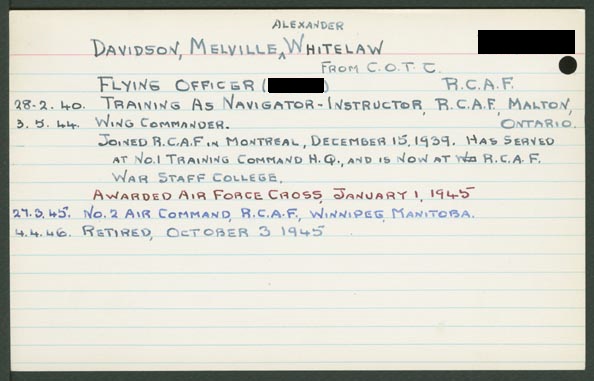 ALEXANDER
DAVIDSON, MELVILLE, ^ WHITELAW
FROM C.O.T.C.
FLYING OFFICER ( ) R.C.A.F.
28-2.40. TRAINING AS NAVIGATOR-INSTRUCTOR, R.C.A.F., MALTON,
3.5.44. WING COMMANDER. ONTARIO.
JOINED R.C.A.F IN MONTREAL, DECEMBER 15, 1939. HAS SERVED
AT NO.1 TRAINING COMMAND H.Q., AND IS NOW AT R.C.A.F.
WAR STAFF COLLEGE.
AWARDED AIR FORCE CROSS, JANUARY 1, 1945
27.3.45. NO.2 AIR COMMAND, R.C.A.F., WINNIPEG, MANITOBA.
4.4.46. RETIRED, OCTOBER 3 1945